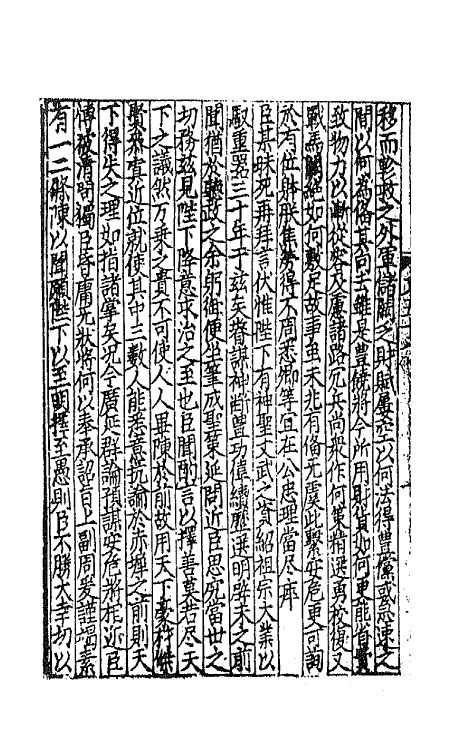 移而黔政之外軍儲闕之財賦屢空以何法得豐羸或忽速之
間以何為備其向士雖是豊饒將今所用財貨如何更能省費
致物力以漸從容及慮諸路冗兵尚衆作何策精選勇敢復又
戰馬闕絕如何戰足故事虽未兆有備无虞此繫安危更可詢
於有位胼胝焦勞得不周悉卿等宜在公忠理當尽一
臣某昧死再拜言伏惟陛下有神聖文武之資紹祖宗大業以
馭重器三十年于兹矣聲謀神断豊功值績歷選明辟未之前
聞猶於聽政之余躬御便坐肇成聖業延問近臣思究當世之
切務兹見陛下降意求治之至也臣畢聞酌言以擇善莫若尽天
下之議然万乘之貴不可使人人畢陳於前故用天下豪杰傑
置近位就使其中二数人能悉意抗論於赤墀之前則天
下得失之理如指諸掌矣况今廣延群論預謀安危將在近臣
傅被清問獨臣昏庸无狀將何以奉承詔旨上副周爰謹竭素
有一二條陳以聞願陛下以至明擇至愚則臣不勝大幸切以